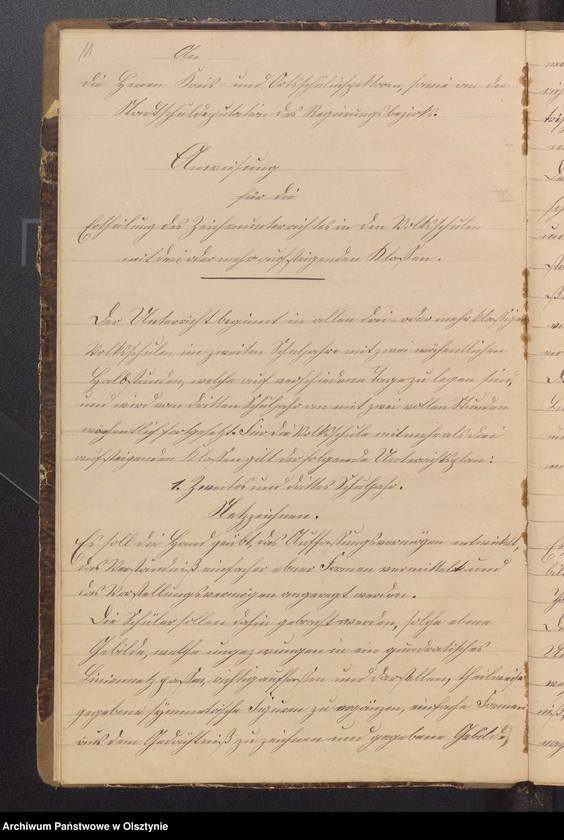 11
An
die Herren Kreis- und Ortsschulinspektoren, sowie an die
Stadtschuldeputation des Regierungsbezirks.
Anweisung
für die
Ertheilung des Zeichenunterrichtes in den Volksschulen
mit drei oder mehr aufsteigenden Klassen.
Der Unterricht beginnt in allen drei- oder mehrklassigen
Volksschulen im zweiten Schuljahre mit zwei wöchentlichen
Halbstunden, welche auf verschiedene Tage zu legen sind,
und wird vom dritten Schuljahr an mit zwei vollen Stunden
wöchentlich fortgesetzt. Für die Volksschule mit mehr als drei
aufsteigenden Klassen gilt der folgende Unterrichtsplan:
1. Zweites und drittes Schuljahr.
Netzzeichnen.
Es soll die Hand geübt, das Auffassungsvermögen entwickelt,
das Verständniß einfacher ebner Formen vermittelt und
das Vorstellungsvermögen angeregt werden.
Die Schüler sollen dahin gebracht werden, solche ebene
Gebilde, welche ungezwungen in ein quadratisches
Liniennetz passen, richtig auffassen und darstellen, theilweise
gegebene symmetrische Figuren zu ergänzen, einfache Formen
aus dem Gedächtniß zu zeichnen und gegebene Gebilde
Archiwum Państwowe w Olsztynie